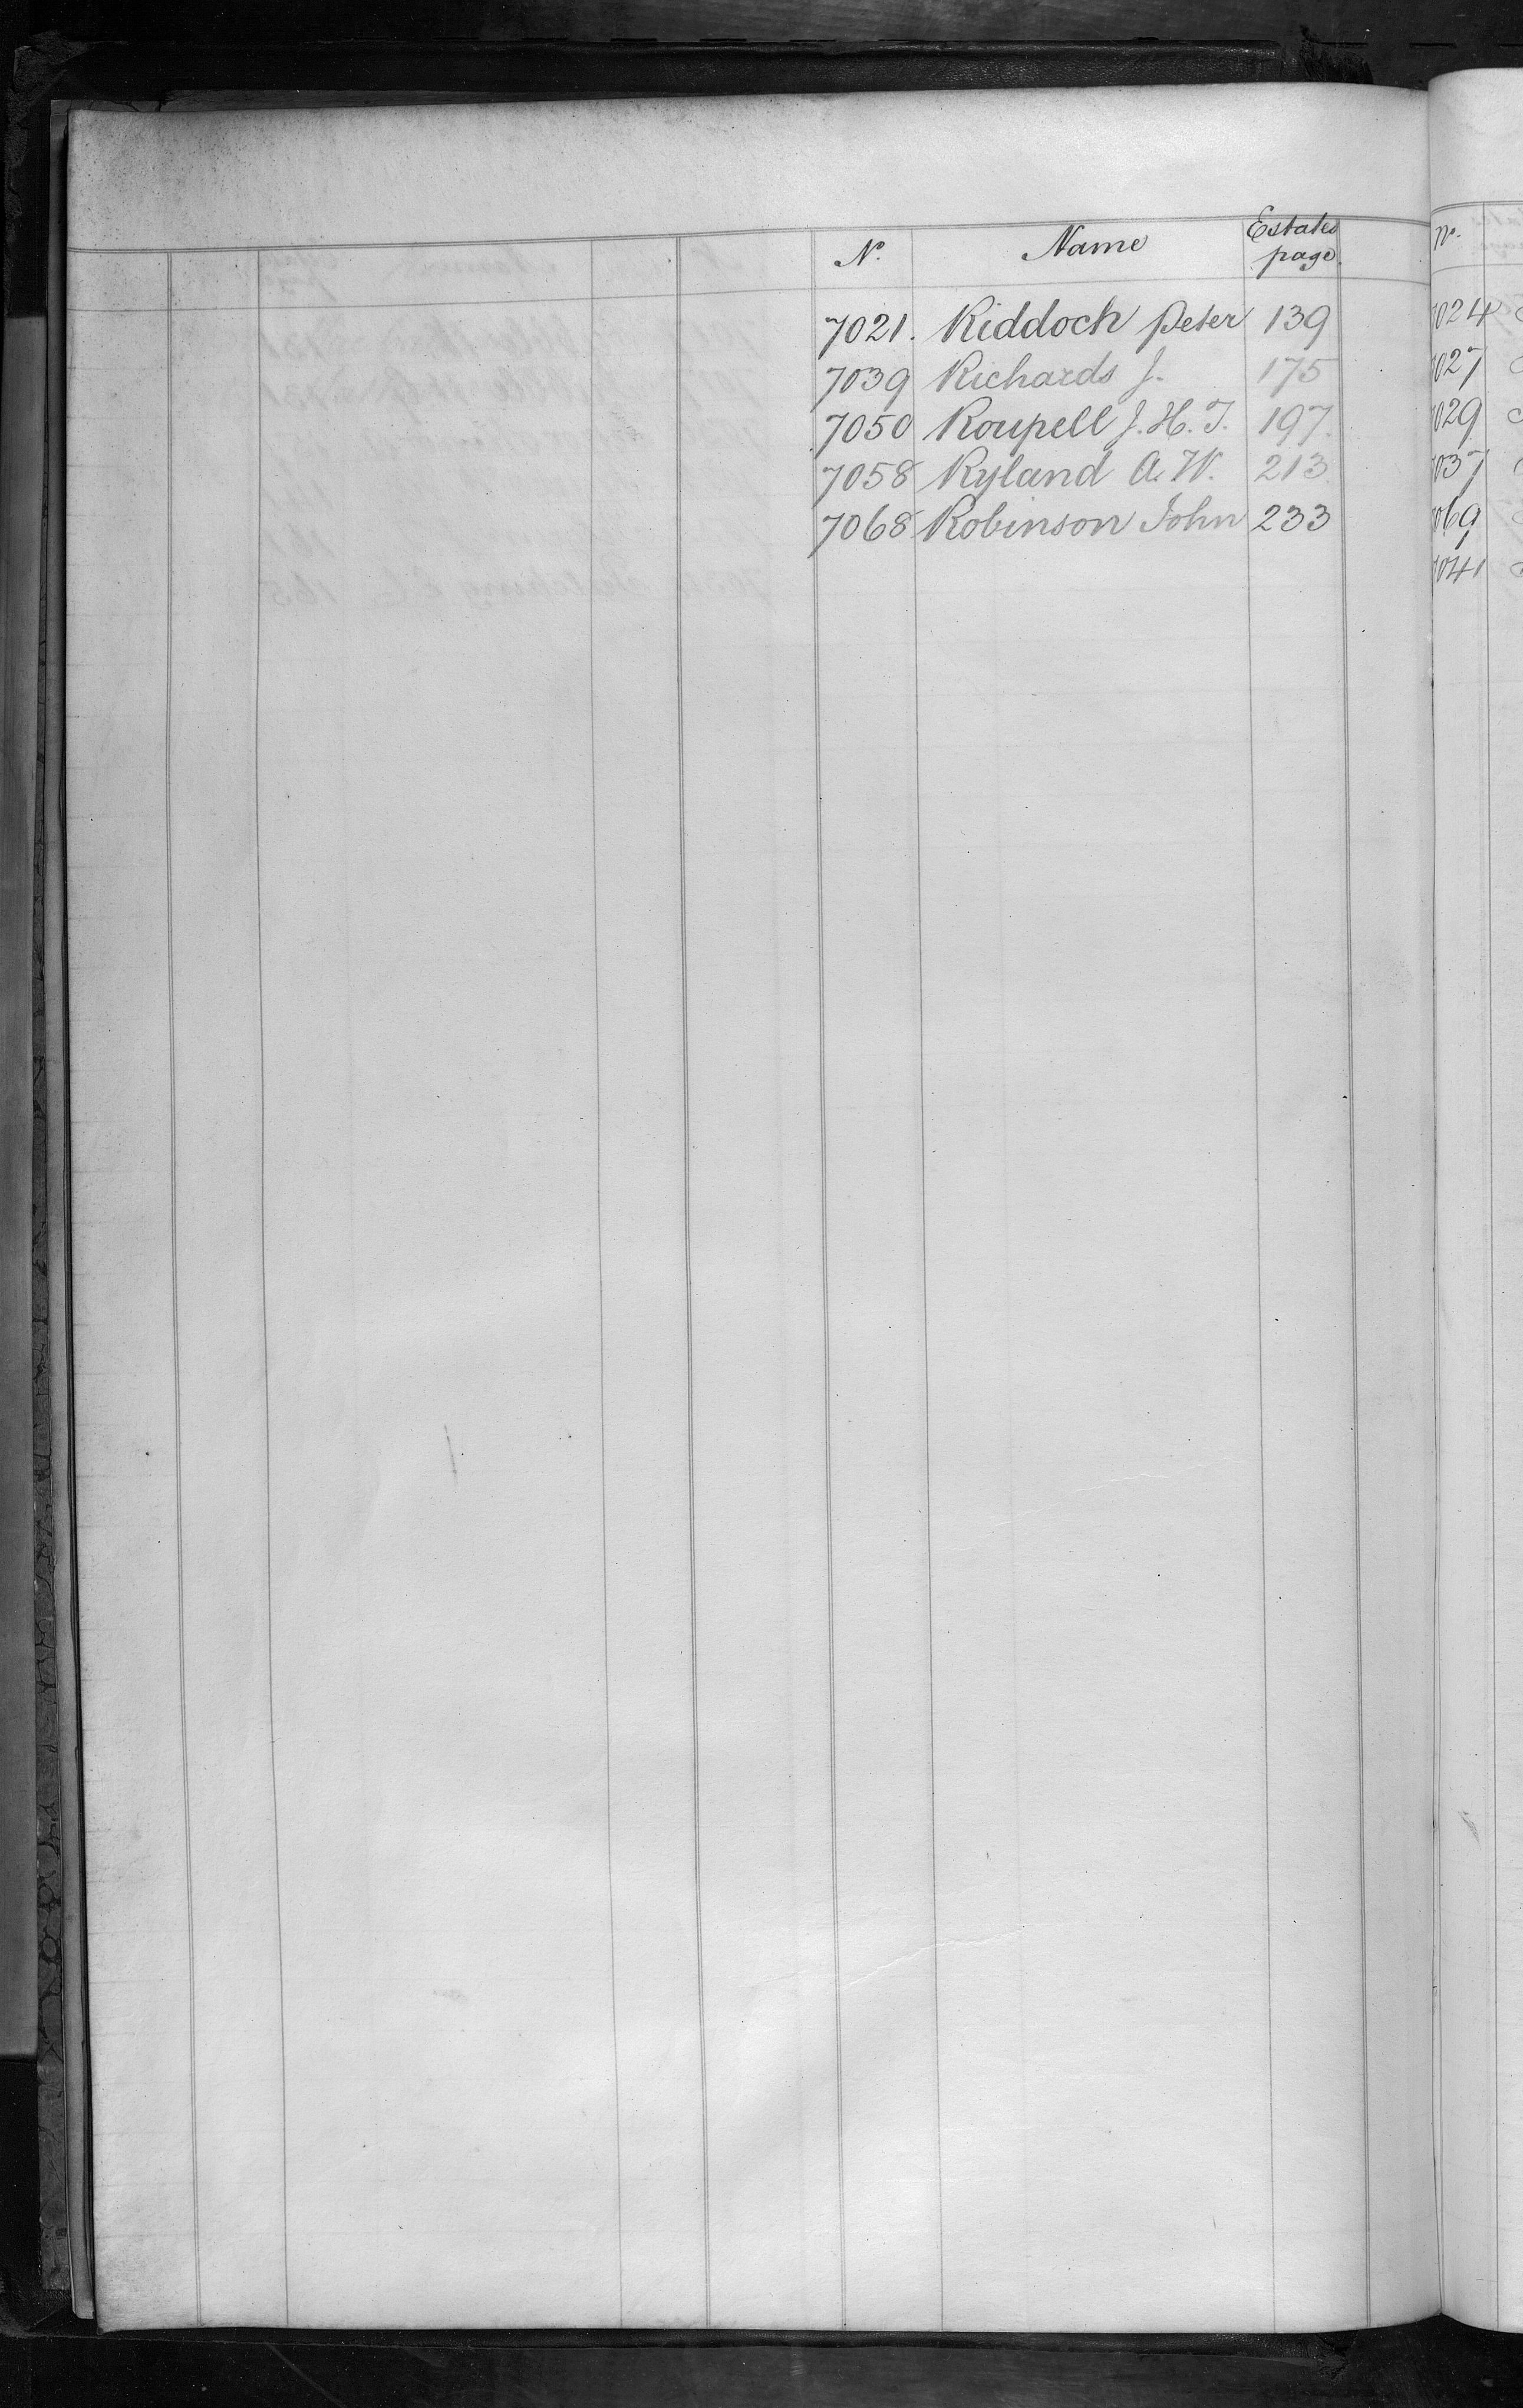 No. Name Estates page.
7021. Riddoch Peter 139
7039 Richards J. 175
7050 Roupell J. H. T. 197.
7058 Ryland A. W. 213
7068 Robinson John 233
No.
7024
7027
7029
7037
7069
7041